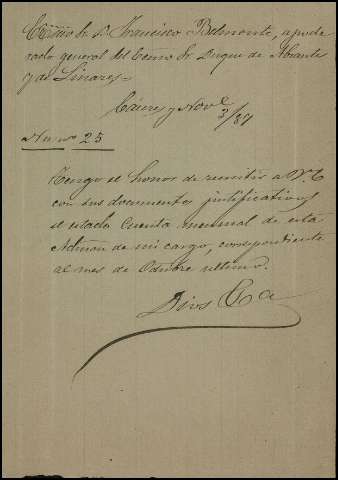 Excmo Sr. D. Francisco Belmonte, apode
rado general del Excmo Sr. Duque de Abrante
y de Linares=
Cáceres y Nove 3/87
Num 25
Tengo el honor de remitir a V. E
con sus documentos justificativos
el estado cuenta mensual de esta
Admon de mi cargo, correspondiente
al mes de Octubre ultimo.
Dios &a